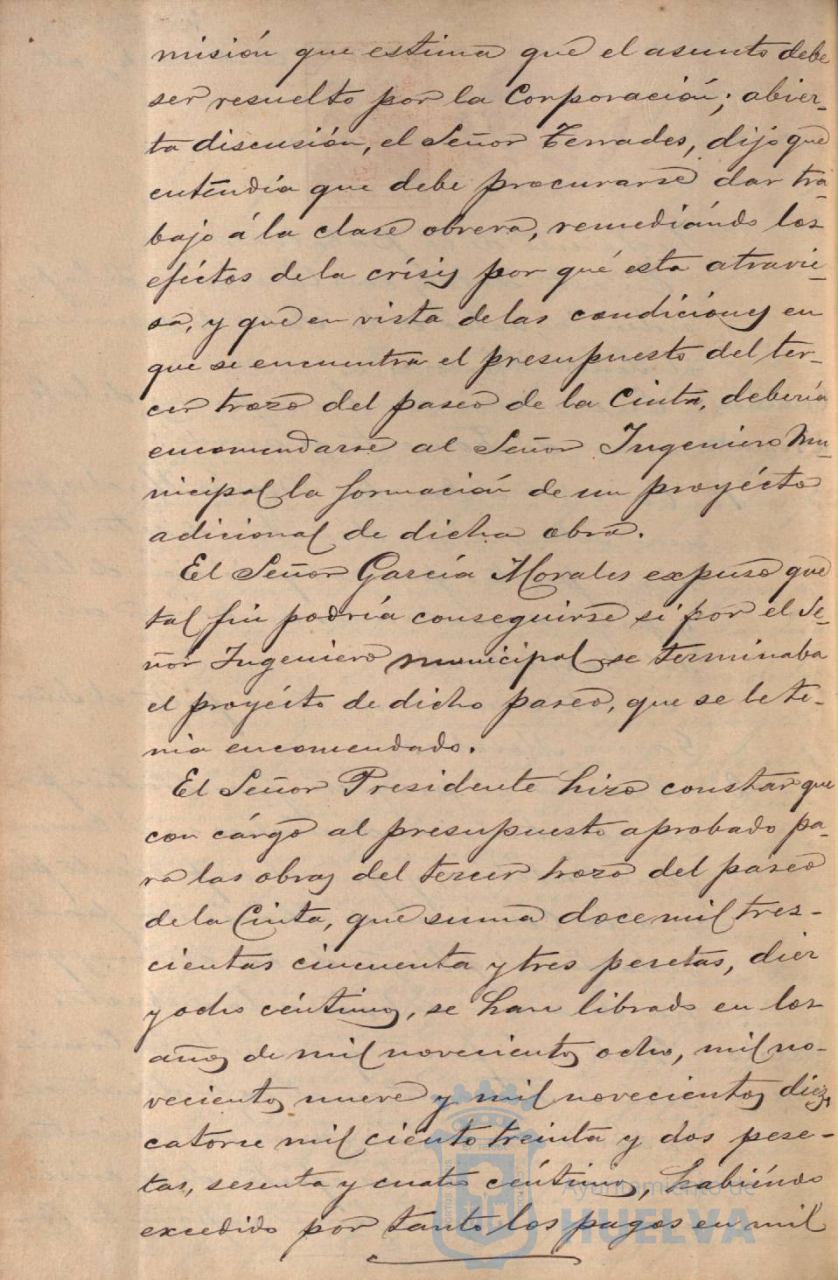 misión que estima que el asunto debe
ser resuelto por la Corporación; abier-
ta discusión, el Señor Terrades, dijo que
enténdía que debe procurarse dar tra-
bajo á la clase obrera, remediándo los
eféctos de la crísis por qué esta atravie-
sa, y que en vista de las condiciones en
que se encuentra el presupuesto del ter-
cer trozo del paseo de la Cinta, debería
encomendarse al Señor Ingeniero Mu-
nicipal la formación de un proyécto
adicional de dicha obra.
El Señor García Morales expuso que
tal fin podría conseguirse si por el Se-
ñor Ingeniero municipal se terminaba
el proyécto de dicho paseo, que se le te-
nia encomendado.
El Señor Presidente hizo constar que
con cárgo al presupuesto aprobado pa-
ra las obras del tercer trozo del paseo
de la Cinta, que suma doce mil tres-
cientas cincuenta y tres pesetas, diez
y ocho céntimos, se han librado en los
años de mil novecientos ocho, mil no-
vecientos nueve y mil novecientos diez,
catorce mil ciento treinta y dos pese-
tas, sesenta y cuatro céntimos, habiéndo
excedido por tanto los pagos en mil
Ayuntamiento de
HUELVA